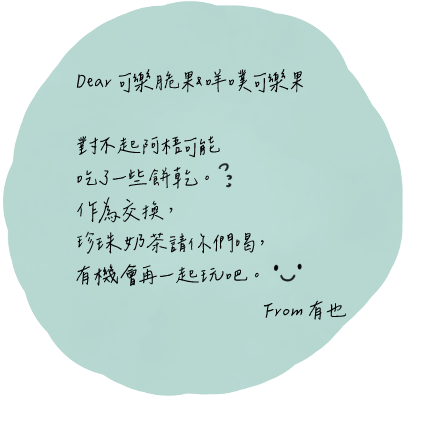 Dear 可樂脆果&咩噗可樂果
對不起阿梧可能
吃了一些餅乾。?
作為交換,
珍珠奶茶請你們喝,
有機會再一起玩吧。
From 有也